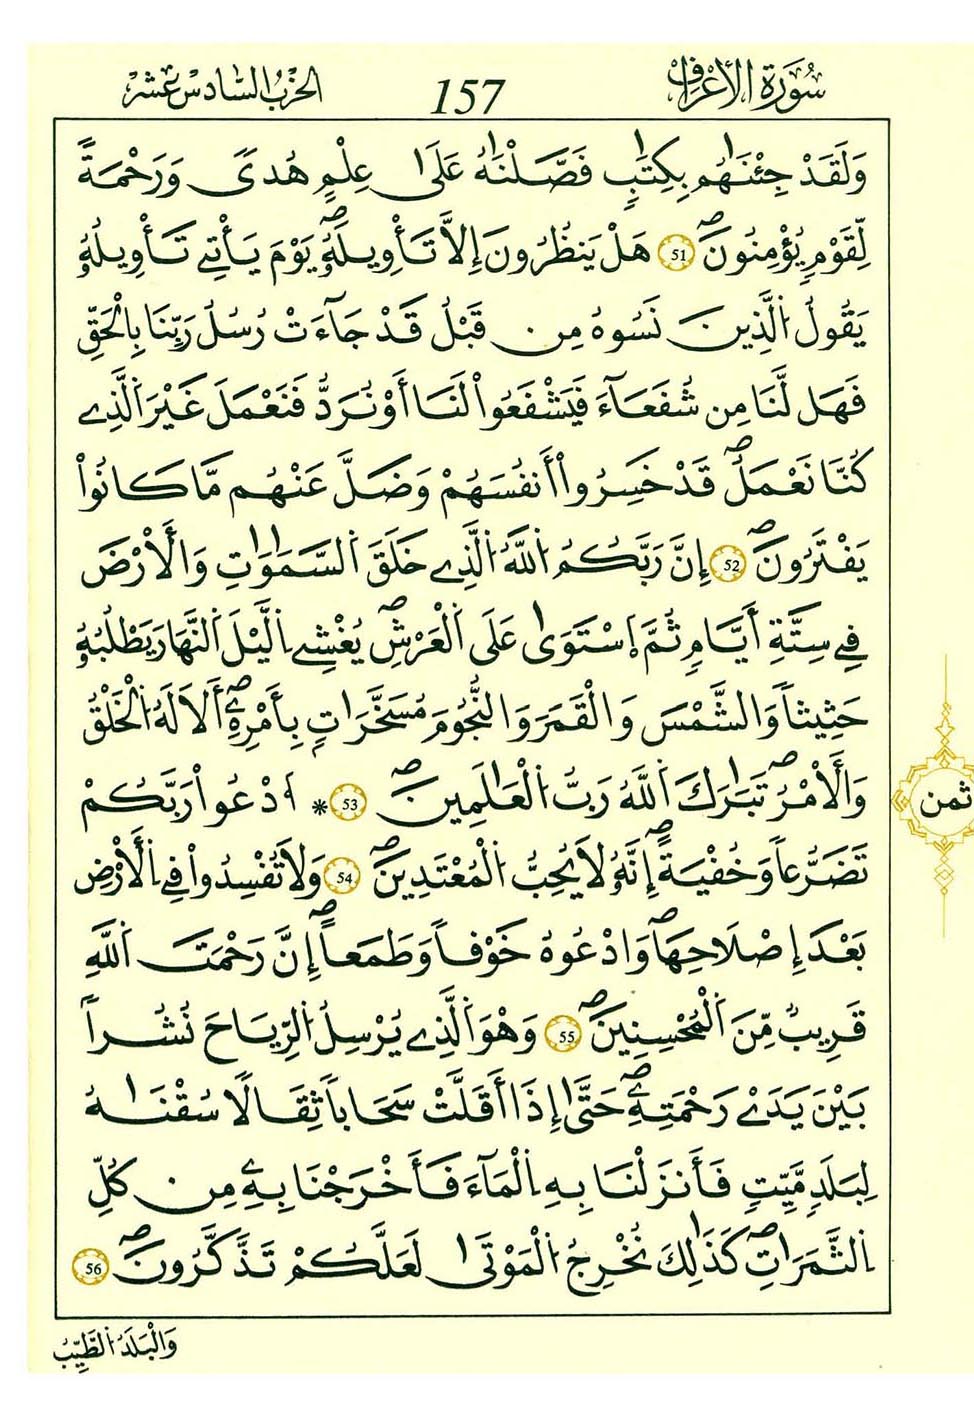 سُورَةُ الْأَعْرَافِ
157
الحِزْبُ السَّادِسَ عَشَرَ
وَلَقَدْ جِئْنَٰهُم بِكِتَٰبٖ فَصَّلْنَٰهُ عَلَىٰ عِلْمٍ هُدىٗ وَرَحْمَةٗ
لِّقَوْمٖ يُؤْمِنُونَۖ 51 هَلْ يَنظُرُونَ إِلَّا تَأْوِيلَهُۥۖ يَوْمَ يَأْتِے تَأْوِيلُهُۥ
يَقُولُ اُ۬لذِينَ نَسُوهُ مِن قَبْلُ قَدْ جَآءَتْ رُسُلُ رَبِّنَا بِالْحَقِّ
فَهَل لَّنَا مِن شُفَعَآءَ فَيَشْفَعُواْ لَنَا أَوْ نُرَدُّ فَنَعْمَلَ غَيْرَ اَ۬لذِے
كُنَّا نَعْمَلُۖ قَدْ خَسِرُواْ أَنفُسَهُمْ وَضَلَّ عَنْهُم مَّا كَانُواْ
يَفْتَرُونَۖ 52 إِنَّ رَبَّكُمُ اُ۬للَّهُ اُ۬لذِے خَلَقَ اَ۬لسَّمَٰوَٰتِ وَالْأَرْضَ
فِے سِتَّةِ أَيَّامٖ ثُمَّ اَ۪سْتَوَىٰ عَلَى اَ۬لْعَرْشِۖ يُغْشِے اِ۬ليْلَ اَ۬لنَّهَارَ يَطْلُبُهُۥ
حَثِيثاٗ وَالشَّمْسَ وَالْقَمَرَ وَالنُّجُومَ مُسَخَّرَاتِۢ بِأَمْرِهِۦۖ أَلَا لَهُ اُ۬لْخَلْقُ
وَالْأَمْرُۖ تَبَٰرَكَ اَ۬للَّهُ رَبُّ اُ۬لْعَٰلَمِينَۖ 53 * اَ۟دْعُواْ رَبَّكُمْ
تَضَرُّعاٗ وَخُفْيَةًۖ إِنَّهُۥ لَا يُحِبُّ اُ۬لْمُعْتَدِينَۖ 54 وَلَا تُفْسِدُواْ فِے اِ۬لْأَرْضِ
بَعْدَ إِصْلَاحِهَاۖ وَادْعُوهُ خَوْفاٗ وَطَمَعاًۖ إِنَّ رَحْمَتَ اَ۬للَّهِ
قَرِيبٞ مِّنَ اَ۬لْمُحْسِنِينَۖ 55 وَهْوَ اَ۬لذِے يُرْسِلُ اُ۬لرِّيَاحَ نُشُراَۢ
بَيْنَ يَدَےْ رَحْمَتِهِۦۖ حَتَّىٰ إِذَا أَقَلَّتْ سَحَاباٗ ثِقَالاٗ سُقْنَٰهُ
لِبَلَدٖ مَّيِّتٖ فَأَنزَلْنَا بِهِ اِ۬لْمَآءَ فَأَخْرَجْنَا بِهِۦ مِن كُلِّ
اِ۬لثَّمَرَٰتِۖ كَذَٰلِكَ نُخْرِجُ اُ۬لْمَوْتَىٰ لَعَلَّكُمْ تَذَّكَّرُونَۖ 56
ثمن
وَالْبَلَدُ اُ۬لطَّيِّبُ